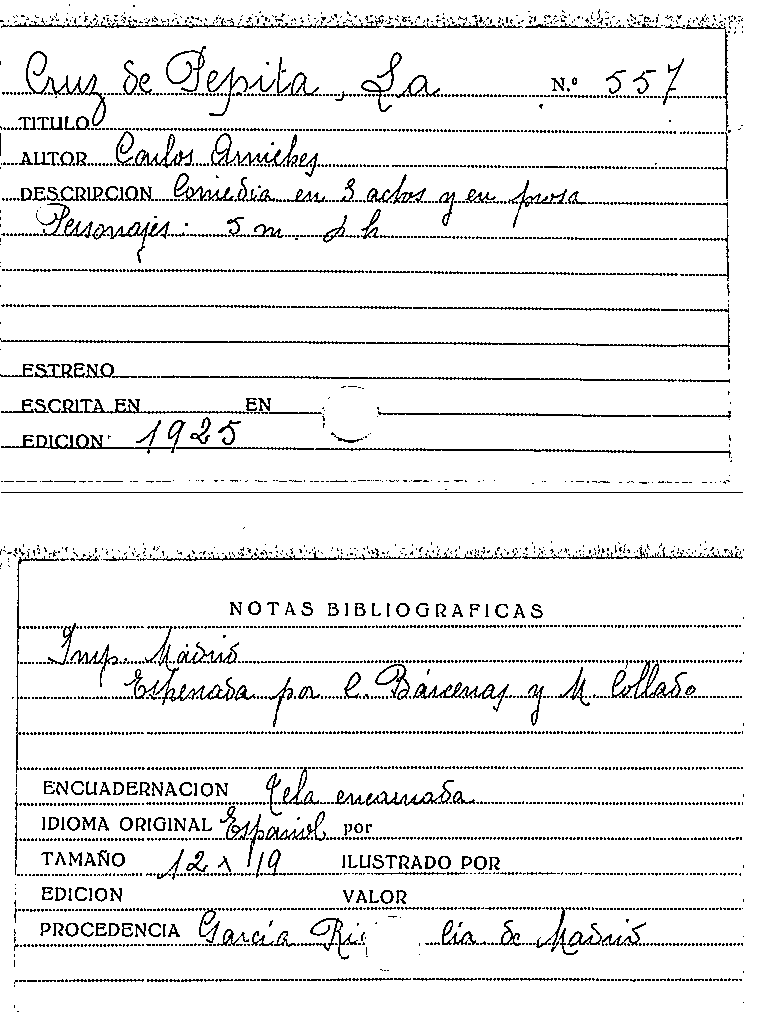 Cruz de Pepita, La N.º 557
TITULO
AUTOR Carlos Arniches
DESCRIPCION Comedia en 3 actos y en prosa
Personajes: 5 m. h
ESTRENO
ESCRITA EN EN
EDICION 1925
NOTAS BIBLIOGRAFICAS
Imp. Madrid
Estrenada por C. Bárcenas y M. Collado
ENCUADERNACION Tela encarnada
IDIOMA ORIGINAL Español por
TAMAÑO 12 x 19 ILUSTRADO POR
EDICION VALOR
PROCEDENCIA García Ri lia de Madrid